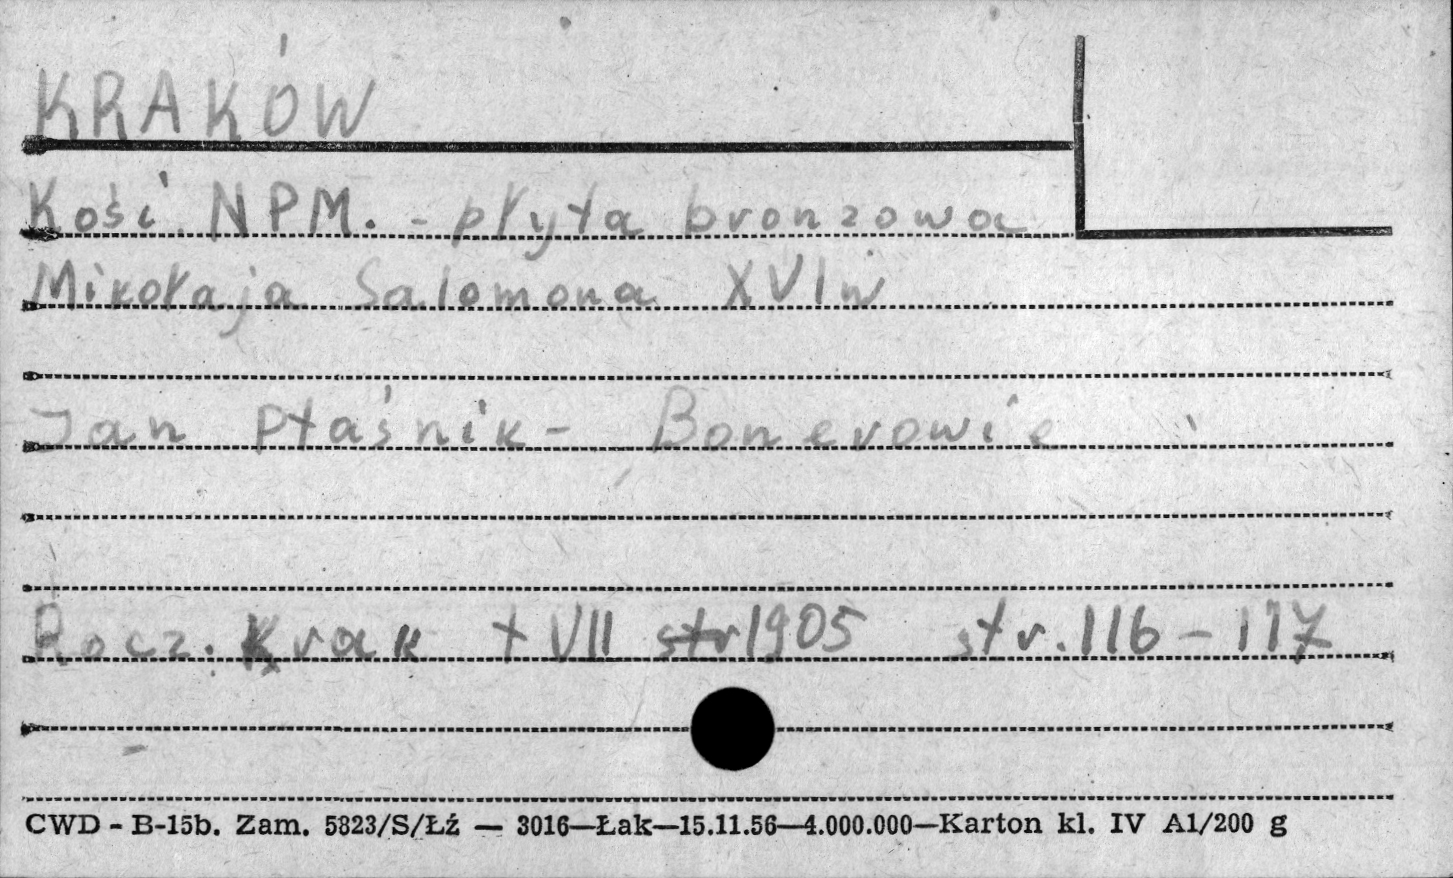 KRAKÓW
Kość. NPM. - płyta bronzowa
Mikołaja Salomona XVI w
Jan Ptaśnik - Bonerowie
Rocz. Krak t VII str 1905 str. 116 - 117
CWD - B-15b. Zam. 5823/S/Łź — 3016—Łak—15.11.56—4.000.000—Karton kl. IV A1/200 g